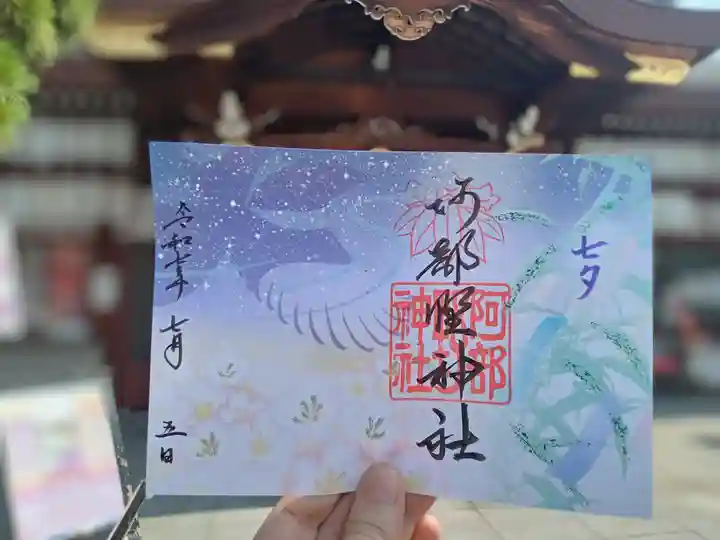 七夕
阿部野神社
阿部野神社
令和七年
七月
五日